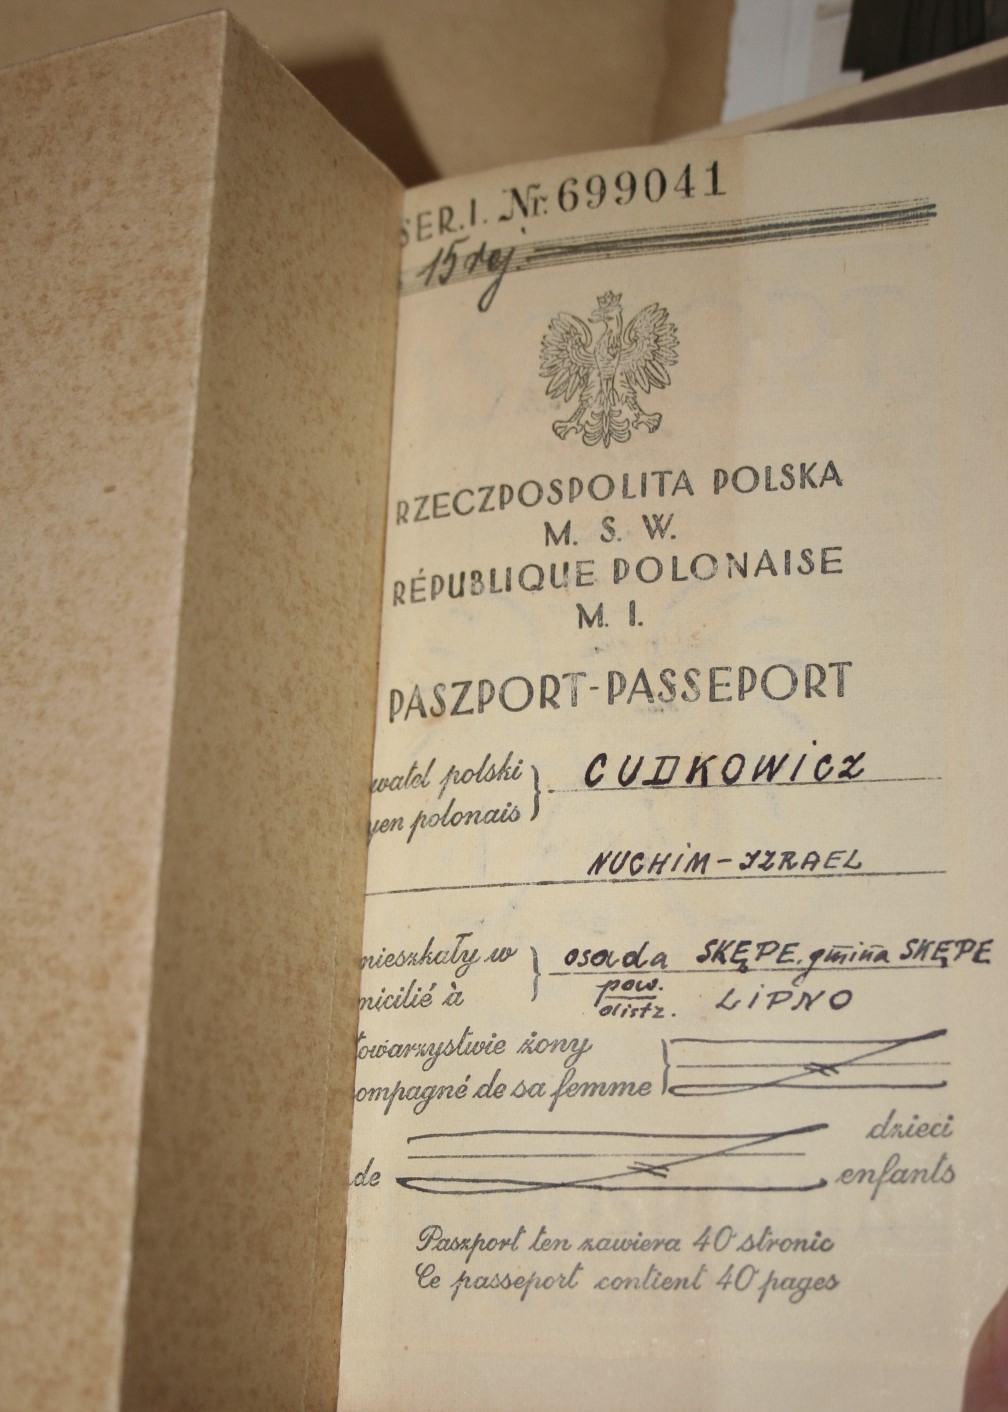 SER. I. Nr. 699041
15 rej.
RZECZPOSPOLITA POLSKA
M. S. W.
RÉPUBLIQUE POLONAISE
M. I.
PASZPORT-PASSEPORT
watel polski
yen polonais
CUDKOWICZ
NUCHIM-IZRAEL
mieszkały w
micilié à
osada SKĘPE, gmina SKĘPE
pow. LIPNO
towarzystwie żony
ompagné de sa femme
dzieci
de enfants
Paszport ten zawiera 40 stronic
Ce passeport contient 40 pages